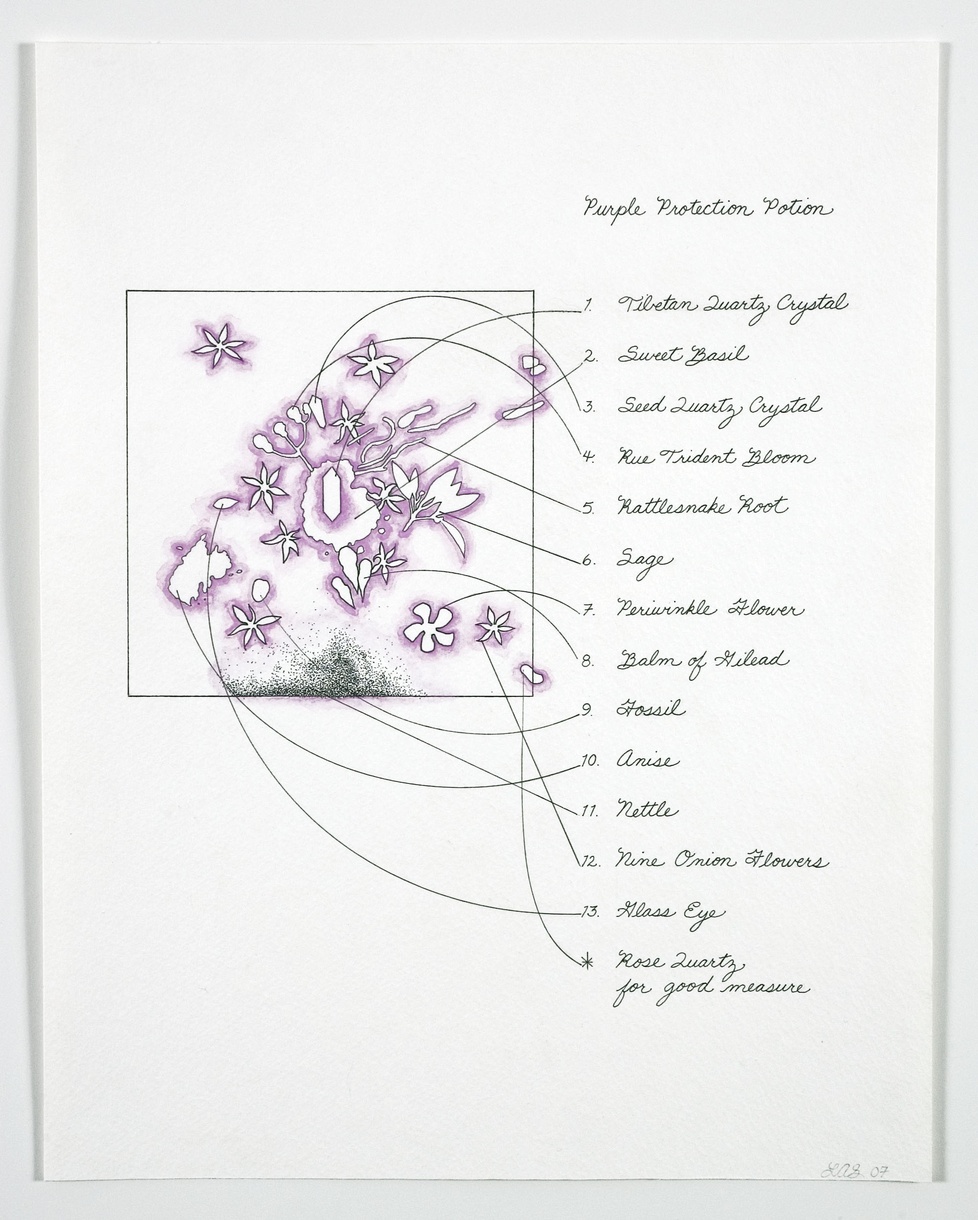 Purple Protection Potion
1. Tibetan Quartz Crystal
2. Sweet Basil
3. Seed Quartz Crystal
4. Rue Trident Bloom
5. Rattlesnake Root
6. Sage
7. Periwinkle Flower
8. Balm of Gilead
9. Fossil
10. Anise
11. Nettle
12. Nine Onion Flowers
13. Glass Eye
* Rose Quartz
for good measure
07